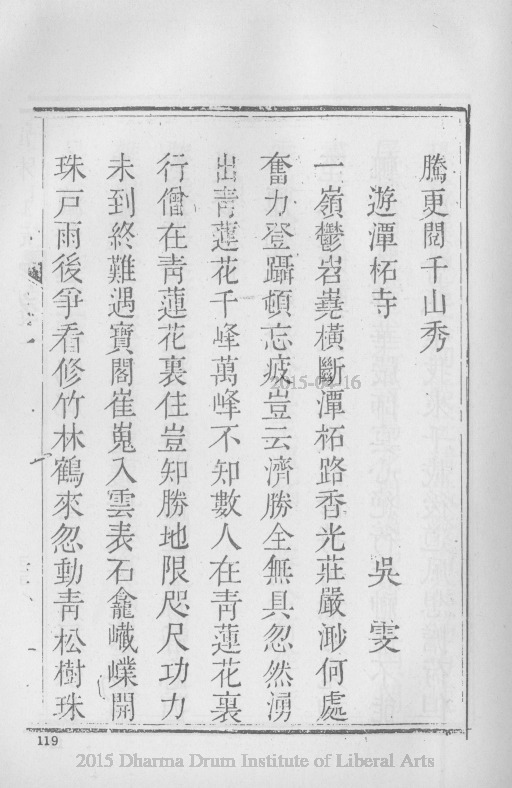 騰更閱千山秀
遊潭柘寺　吳雯
一嶺鬱岧嶤橫斷潭柘路香光莊嚴渺何處
奮力登躡頓忘疲豈云濟勝全無具忽然湧
出青蓮花千峰萬峰不知數人在青蓮花裏
行僧在青蓮花裏住豈知勝地限咫尺功力
未到終難遇寶閣崔嵬入雲表石龕嶻嶫開
珠戸雨後爭看修竹林鶴來忽動青松樹珠
119
2015-04-16
2015 Dharma Drum Institute of Liberal Arts